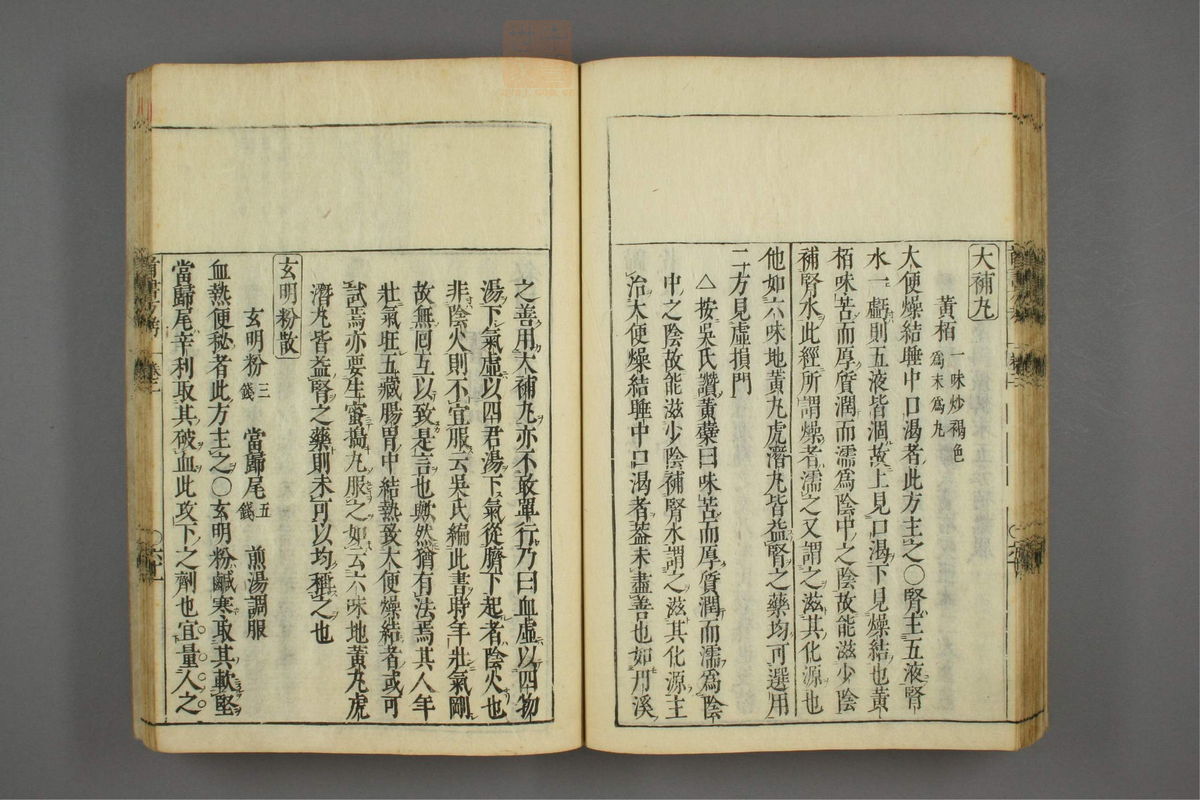 大補丸
黃栢 一味炒褐色
為末為丸
大便燥結睡中口渴者此方主之〇腎主五液腎
水一虧則五液皆涸故上見口渴下見燥結也黃
栢味苦而厚質潤而濡為陰中之陰故能滋少陰
補腎水此經所謂燥者濡之又謂之滋其化源也
他如六味地黃丸虎潛丸皆益腎之藥均可選用
二方見虛損門
△按吳氏讚黃蘗曰味苦而厚質潤而濡為陰
中之陰故能滋少陰補腎水謂之滋其化源主
治大便燥結睡中口渴者蓋未盡善也如丹溪
之善用大補丸亦不敢單行乃曰血虛以四物
湯下氣虛以四君湯下氣從臍下起者陰火也
非陰火則不宜服云吳氏編此書時年壯氣剛
故無回互以致是言也歟然猶有法焉其人年
壯氣旺五藏腸胃中結熱致大便燥結者或可
試焉亦要生蜜搗丸服之如云六味地黃丸虎
潛丸皆益腎之藥則未可以均種之也
玄明粉散
玄明粉 三錢 當歸尾 五錢 煎湯調服
血熱便秘者此方主之〇玄明粉鹹寒取其軟堅
當歸尾辛利取其破血此攻下之劑也宜量人之